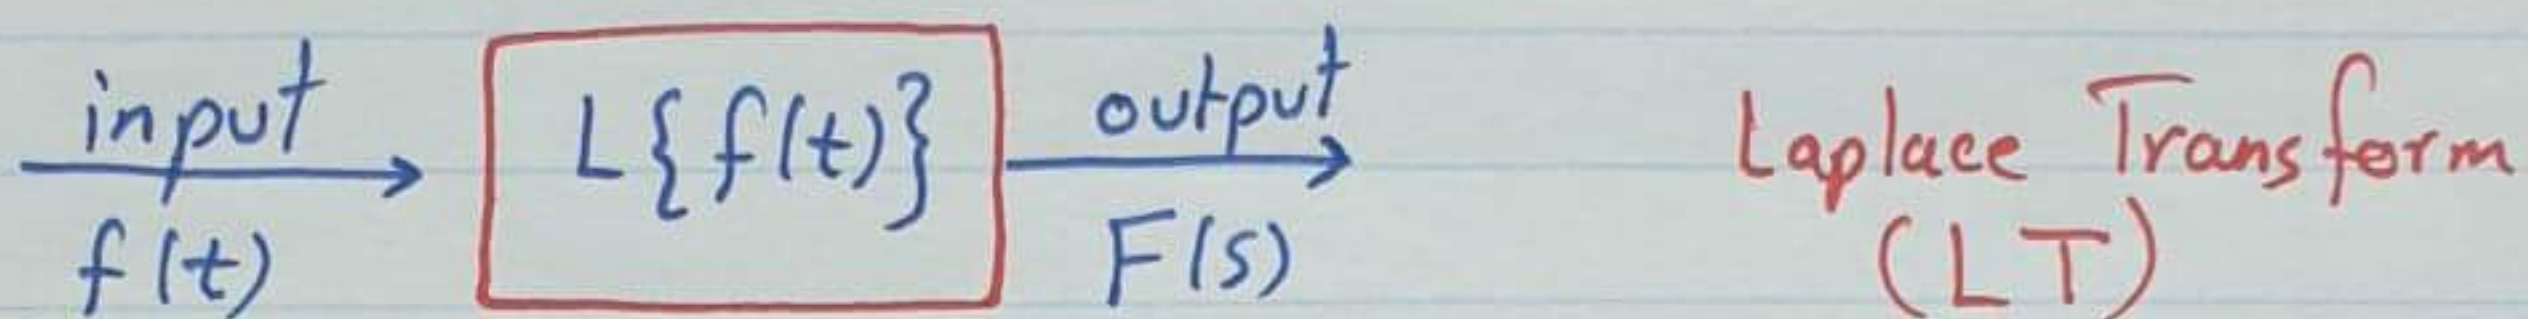 input
f(t)
L{f(t)}
output
F(s)
Laplace Transform
(LT)